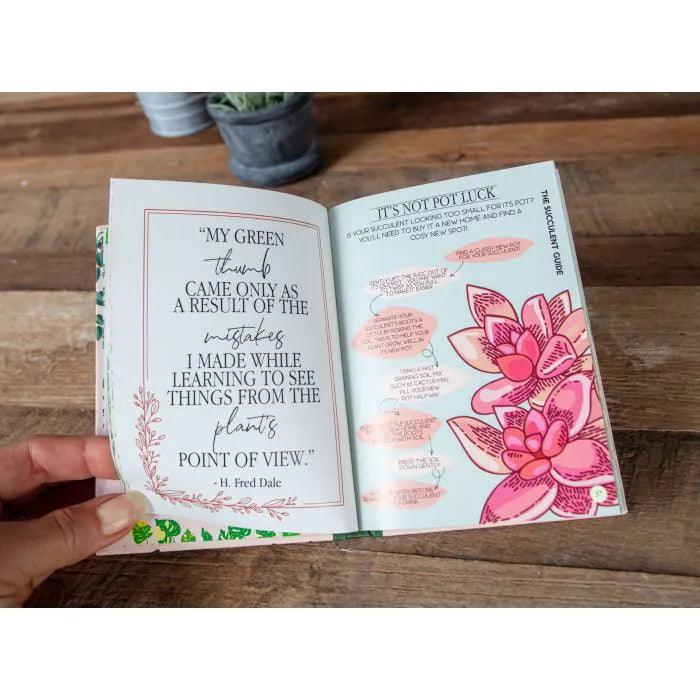 "MY GREEN
thumb
CAME ONLY AS
A RESULT OF THE
mistakes
I MADE WHILE
LEARNING TO SEE
THINGS FROM THE
plant's
POINT OF VIEW."
- H. Fred Dale
IT'S NOT POT LUCK
IS YOUR SUCCULENT LOOKING TOO SMALL FOR ITS POT?
YOU'LL NEED TO BUY IT A NEW HOME AND FIND A
COSY NEW SPOT!
THE SUCCULENT GUIDE
FIND A CLASSY NEW POT
FOR YOUR SUCCULENT!
GENTLY LIFT THE SUCC OUT OF
ITS OLD POT. YOU MAY WANT
TO TWIST AS YOU PULL
TO MAKE IT EASIER.
SEPARATE YOUR
SUCCULENT'S ROOTS A
LITTLE BY POKING THE
SOIL. THIS IS TO HELP YOUR
PLANT GROW WELL IN
ITS NEW POT.
USING A FAST
DRAINING SOIL MIX
(SUCH AS CACTUS MIX),
FILL YOUR NEW
POT HALFWAY.
SUCCULENT
NEW HOME AND
THE ROOTS
WITH SOIL.
PRESS THE SOIL
DOWN GENTLY.
WEEK BEFORE
YOUR SUCCULENT
A DRINK.